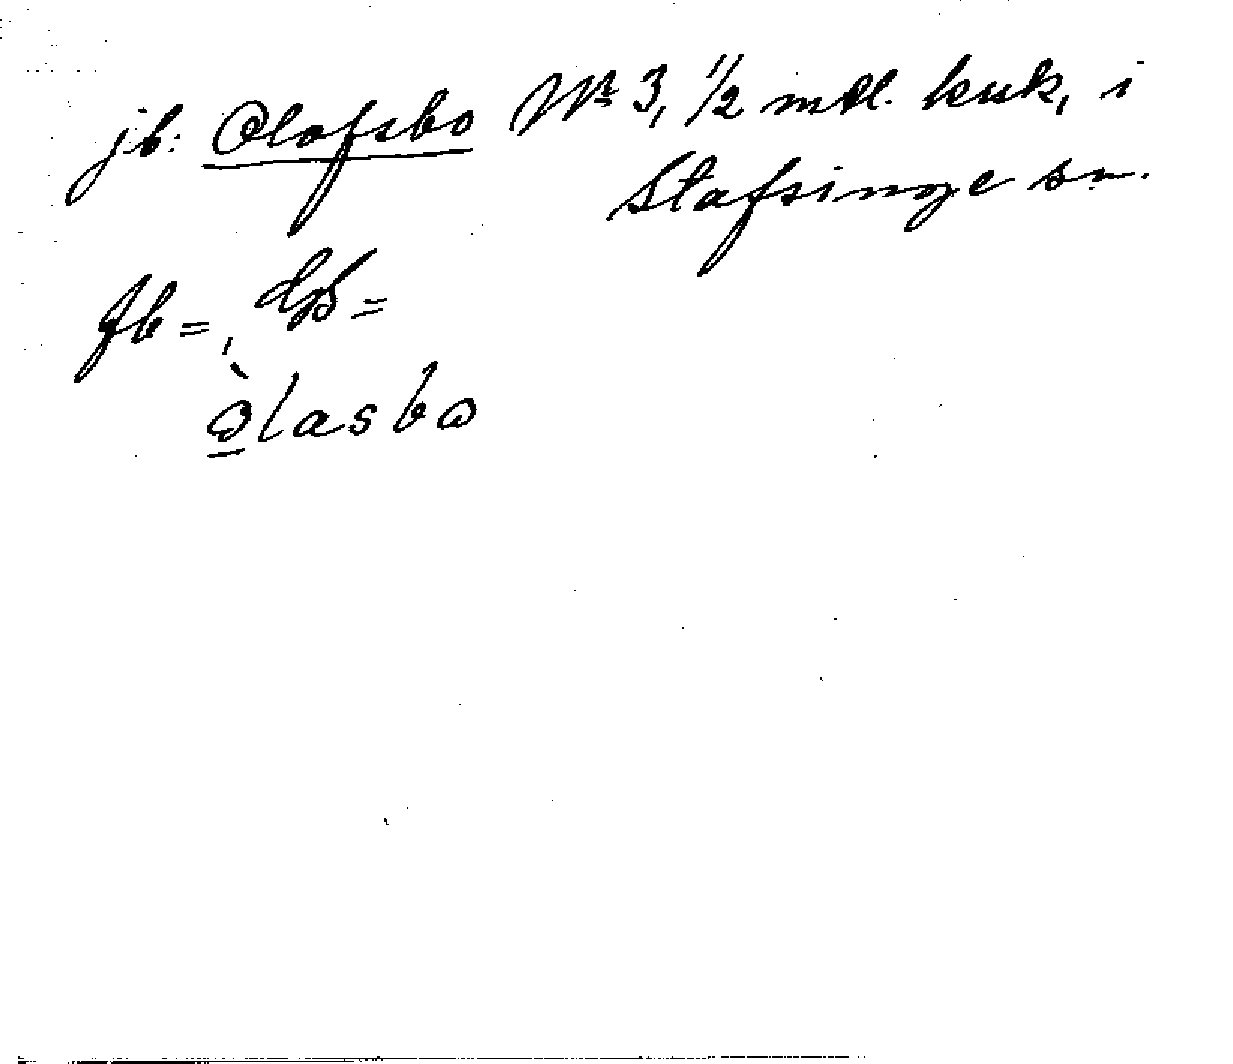 jb: Olofsbo Nr 3, 1/2 mtl. kuk, i
Stafsinge sn.
Jb =, GB =
òlasbo